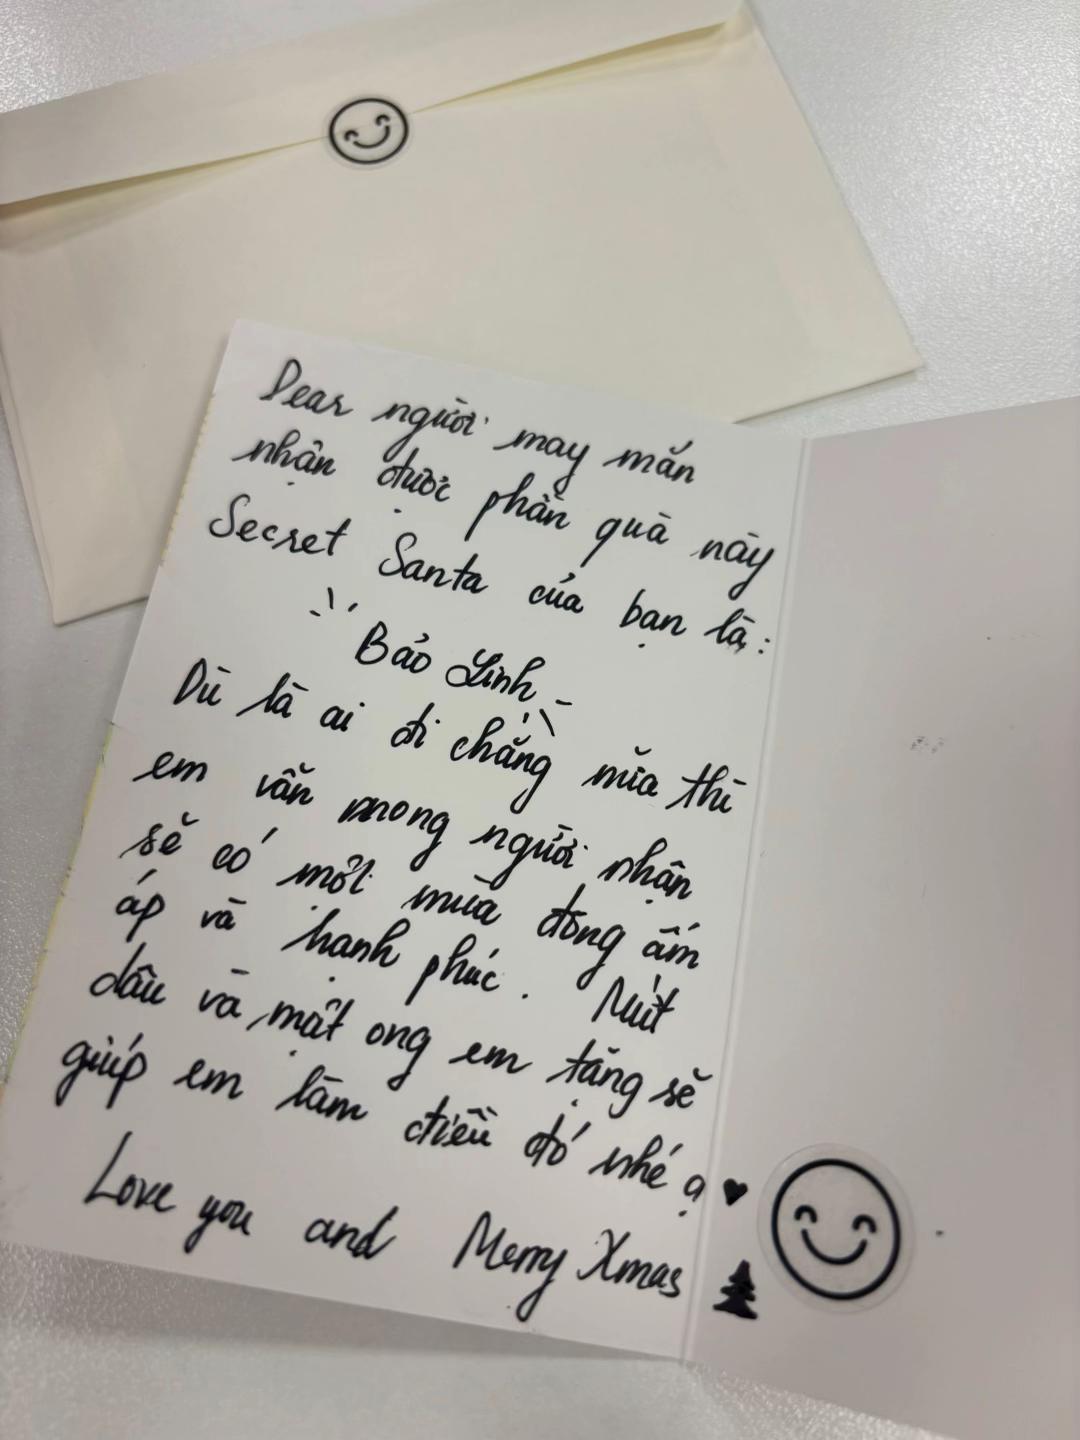 Dear người may mắn
nhận được phần quà này
Secret Santa của bạn là:
Bảo Linh
Dù là ai đi chăng nữa thì
em vẫn mong người nhận
sẽ có một mùa đông ấm
áp và hạnh phúc. Mứt
dâu và mật ong em tặng sẽ
giúp em làm điều đó nhé ạ
Love you and Merry Xmas